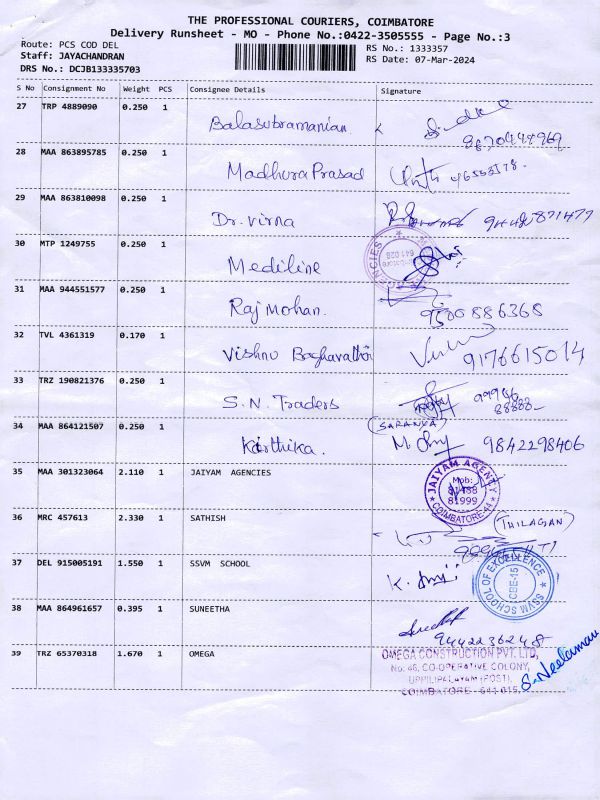 THE PROFESSIONAL COURIERS, COIMBATORE
Delivery Runsheet - MO - Phone No.:0422-3505555 - Page No.:3
Route: PCS COD DEL
RS No.: 1333357
Staff: JAYACHANDRAN
RS Date: 07-Mar-2024
DRS No.: DCJB133335703
S No Consignment No Weight PCS Consignee Details Signature
27 TRP 4889090 0.250 1
Balasubramanian
9870444969
28 MAA 863895785 0.250 1
Madhura Prasad
29 MAA 863810098 0.250 1
Dr. Virna
30 MTP 1249755 0.250 1
Mediline
31 MAA 944551577 0.250 1
Raj Mohan.
9500886368
32 TVL 4361319 0.170 1
Vishnu
9176615014
33 TRZ 190821376 0.250 1
S.N. Traders
34 MAA 864121507 0.250 1
(SARANYA)
Karthika. 9842298406
35 MAA 301323064 2.110 1 JAIYAM AGENCIES
JAIYAM AGENCY
Mob:
81999
COIMBATORE-44
36 MRC 457613 2.330 1 SATHISH
(THILAGAN)
37 DEL 915005191 1.550 1 SSVM SCHOOL
SSVM SCHOOL OF EXCELLENCE
CBE-15
38 MAA 864961657 0.395 1 SUNEETHA
39 TRZ 65370318 1.670 1 OMEGA
OMEGA CONSTRUCTION PVT. LTD,
No: 46, CO-OPERATIVE COLONY,
UPPILIPALAYAM (POST),
COIMBATORE - 641 015.
S. Neelaman